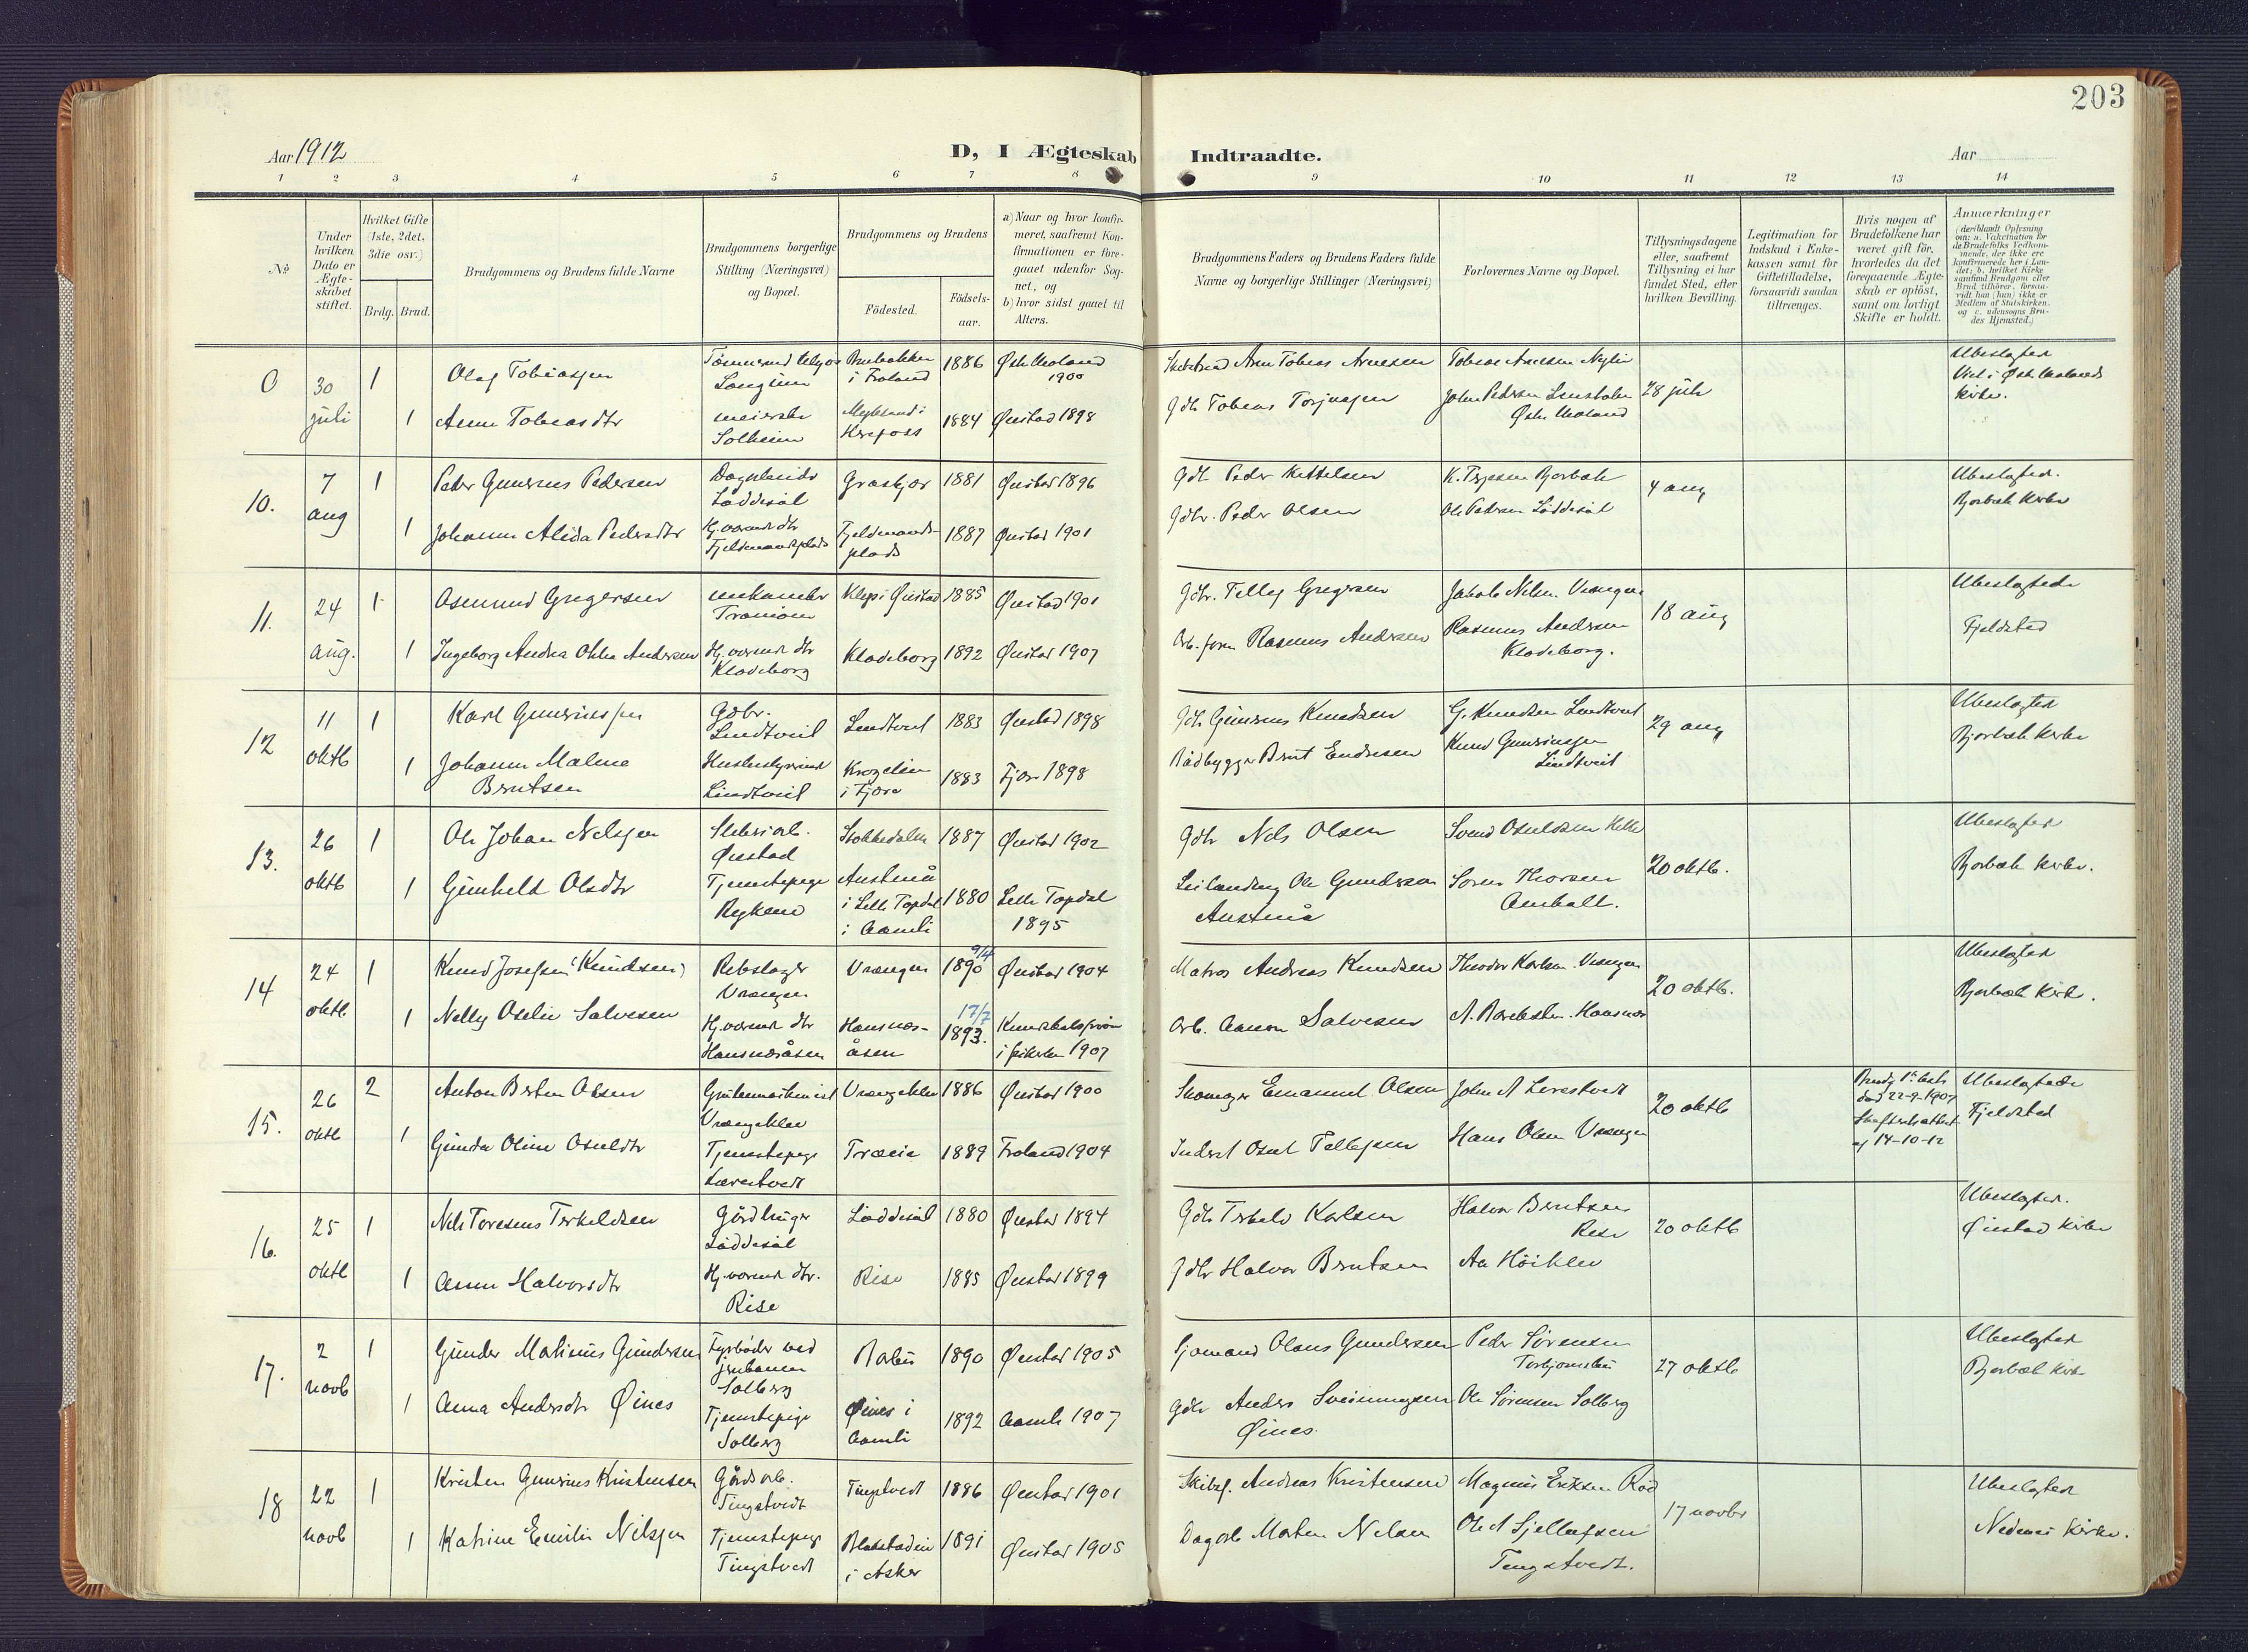 203
Aar 1912
D, I Ægteskab Indtraadte.
Aar
1 2 3 4 5 6 7 8 9 10 11 12 13 14
No
Under hvilken Dato er Ægteskabet stiftet.
Hvilket Gifte (1ste, 2det, 3die osv.)
Brdg. Brud.
Brudgommens og Brudens fulde Navne
Brudgommens borgerlige Stilling (Næringsvei) og Bopæl.
Brudgommens og Brudens
Födested.
Födselsaar.
a) Naar og hvor konfirmeret, saafremt Konfirmationen er foregaaet udenfor Sognet, og
b) hvor sidst gaaet til Alters.
Brudgommens Faders og Brudens Faders fulde Navne og borgerlige Stillinger (Næringsvei)
Forlovernes Navne og Bopæl.
Tillysningsdagene eller, saafremt Tillysning ei har fundet Sted, efter hvilken Bevilling.
Legitimation for Indskud i Enkekassen samt for Giftetilladelse, forsaavidt saadan tiltrænges.
Hvis nogen af Brudefolkene har været gift för, hvorledes da det foregaaende Ægteskab er oplöst, samt om lovligt Skifte er holdt.
Anmærkninger
(deriblandt Oplysning om: a. Vakcination for de Brudefolks Vedkommende, der ikke ere konfirmerede her i Landet; b. hvilket Kirkesamfund Brudgom eller Brud tilhörer, forsaavidt han (hun) ikke er Medlem af Statskirken, og c. udensogns Brudes Hjemsted.)
0 30 juli 1 Olaf Tobiassen i Froland 1886 Østre Moland 1900 Tobias Arnesen 28 juli Ubeslægtede
Viet i Østre Molands kirke.
1 Anne Tobiasdtr meierske Solheim Mykland i 1884 Øiestad 1898 Gdbr Tobias Torjussen John Pedersen Østre Moland
10. 7 aug 1 Peder Gunerius Pedersen Løddesøl 1881 Øiestad 1896 Gdbr. Peder Kettelsen 4 aug Ubeslægtede.
Bjorbæk kirke
1 Johanne Alida Pedersdtr Hj.værende dtr Fjeldmandsplads Fjeldmandsplads 1887 Øiestad 1901 Gdbr. Peder Olsen Ole Pedersen Løddesøl
11. 24 aug. 1 Osmund Gregersen Tromöen Klep i Øiestad 1885 Øiestad 1901 Gdbr. Tellef Gregersen Jakob Nilsen Vrængen 18 aug Ubeslægtede
Fjeldsted
1 Ingeborg Andrea Othea Andersen Hj.værende dtr Klodeborg Klodeborg 1892 Øiestad 1907 Arb.form. Rasmus Andersen Rasmus Andersen Klodeborg.
12 11 oktb 1 Karl Gunerinssen Gdbr. Lindtveit Lindtveit 1883 Øiestad 1898 Gdb. Gunerius Knudsen G. Knudsen Lindtveit 29 aug Ubeslægtede
Bjorbæk kirke
1 Johanne Malene Berntsen Husbestyrerinde Lindtveit i Fjære 1883 Fjære 1898 Bådbygger Bernt Endresen Knud Gunerinssen Lindtveit
13. 26 oktb 1 Ole Johan Nilssen Sliberiarb. Øiestad Stokkedalen 1887 Øiestad 1902 Gdbr Nils Olsen Svend Osuldsen 20 oktb. Ubeslægtede
Bjorbæk kirke.
1 Gunhild Olsdtr Tjenestepige Rykene Austenå i Lille Topdal i Aamli 1880 Lille Topdal 1895 Leilænding Ole Gundersen Austenå Søren Thorsen
14 24 oktb. 1 Knud Josefsen (Knudsen) Rebslager Vrængen Vrængen 9/4 1890 Øiestad 1904 Matros Andreas Knudsen Theodor Karlsen. Vrængen 20 oktb. Ubeslægtede
Bjorbæk kirke.
1 Nelly Oselie Salvesen Hj.værende dtr Hansnesåsen Hansnesåsen 17/7 1893. 1907 Arb. Aanon Salvesen
15. 26 oktb 2 Anton Bertin Olsen Grubemaskinist Vrængeklev Vrængeklev 1886 Øiestad 1900 Skomager Emanuel Olsen John A Lærestvedt 20 oktb
død 22-9-1907
Skifteattest
af 14-10-12
Ubeslægtede
Fjeldsted
1 Gunda Oline Osuldsdtr Tjenestepige Lærestvedt Træveie 1889 Froland 1904 Inderst Osuld Tellefsen Hans Olsen Vrængen
16. 25 oktb 1 Nils Teresius Terkeldsen Gårdbruger Løddesøl Løddesøl 1880 Øiestad 1894 Gdb Terkeld Karlsen Halvor Berntsen Rise 20 oktb Ubeslægtede.
Øiestad kirke
1 Anne Halvorsdtr Hj.værende dtr. Rise Rise 1885 Øiestad 1899 Gdbr Halvor Berntsen Aa Höiklev
17. 2 novb 1 Gunder Matinius Gundersen Fyrbøder ved jernbanen Solberg 1890 Øiestad 1905 Sjömand Olaus Gundersen Peder Sørensen 27 oktb Ubeslægtede
Bjorbæk kirke
1 Anna Andersdtr Øines Tjenestepige Solberg Øines i Aamli 1892 Aamli 1907 Gdbr Anders Sveinungsen Øines. Ole Sørensen Solberg
18 22 novb 1 Kristen Gunerius Kristensen Gårdsarb. Tingstvedt Tingstvedt 1886 Øiestad 1901 Skibsf. Andreas Kristensen Magnus Eriksen Röd 17 novbr Ubeslægtede
Nedenes kirke.
1 Katrine Emilie Nilssen Tjenestepige Tingstvedt i Asker 1891 Øiestad 1905 Dagarb Morten Nilsen Tingstvedt.